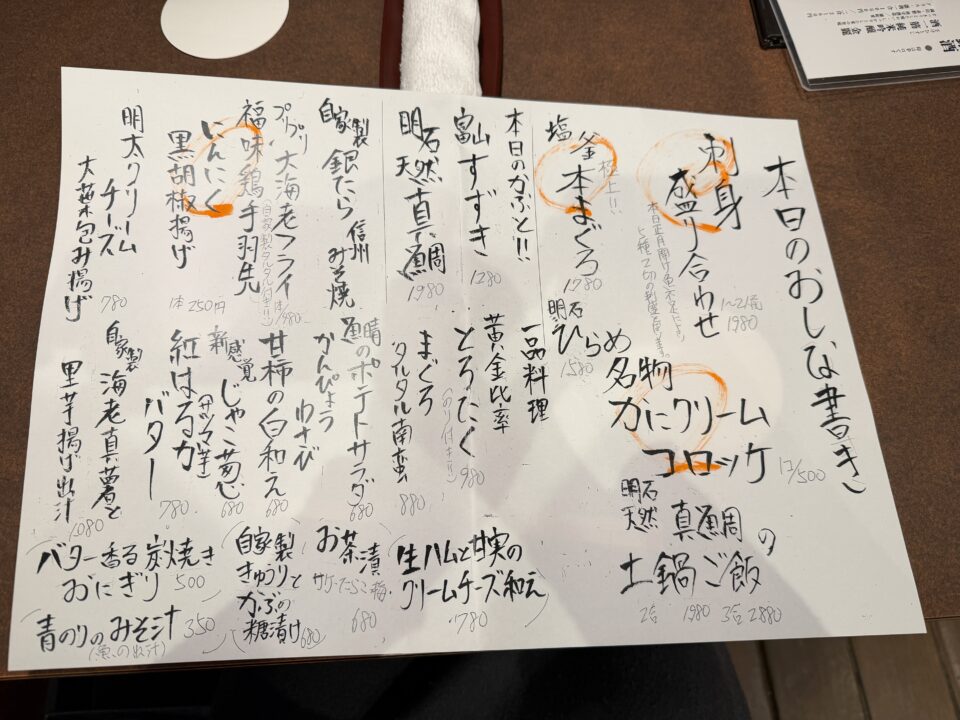 本日のおしな書き
刺身
盛り合わせ
1〜2人前
1980
塩釜 本まぐろ
極上!!
1780
明石
ひらめ
1580
本日のかぶと!!
富山 すずき
1280
明石
天然 真鯛
1980
自家製 銀だら 信州みそ焼
プリプリ 大海老フライ
福味鶏 手羽先
にんにく
黒胡椒揚げ
1本 250円
明太クリーム
チーズ
大葉包み揚げ
780
名物
カニクリーム
コロッケ
1ケ/500
明石
天然 真鯛の
土鍋ご飯
2合 1980 3合 2880
一品料理
黄金比率
とろたく
980
まぐろ
タルタル南蛮
880
晴のポテトサラダ
680
かんぴょう
わさび
甘柿の白和え
680
新感覚 じゃこ葱
680
紅はるか
(サツマ芋)
バター
780
自家製 海老真薯と
里芋揚げ出汁
1080
生ハムと甘実の
クリームチーズ和え
780
お茶漬
サケ・たらこ・梅
680
自家製
きゅうりと
かぶの
糖漬け
680
バター香る炭焼き
おにぎり 500
青のりのみそ汁 350
(魚の出汁)